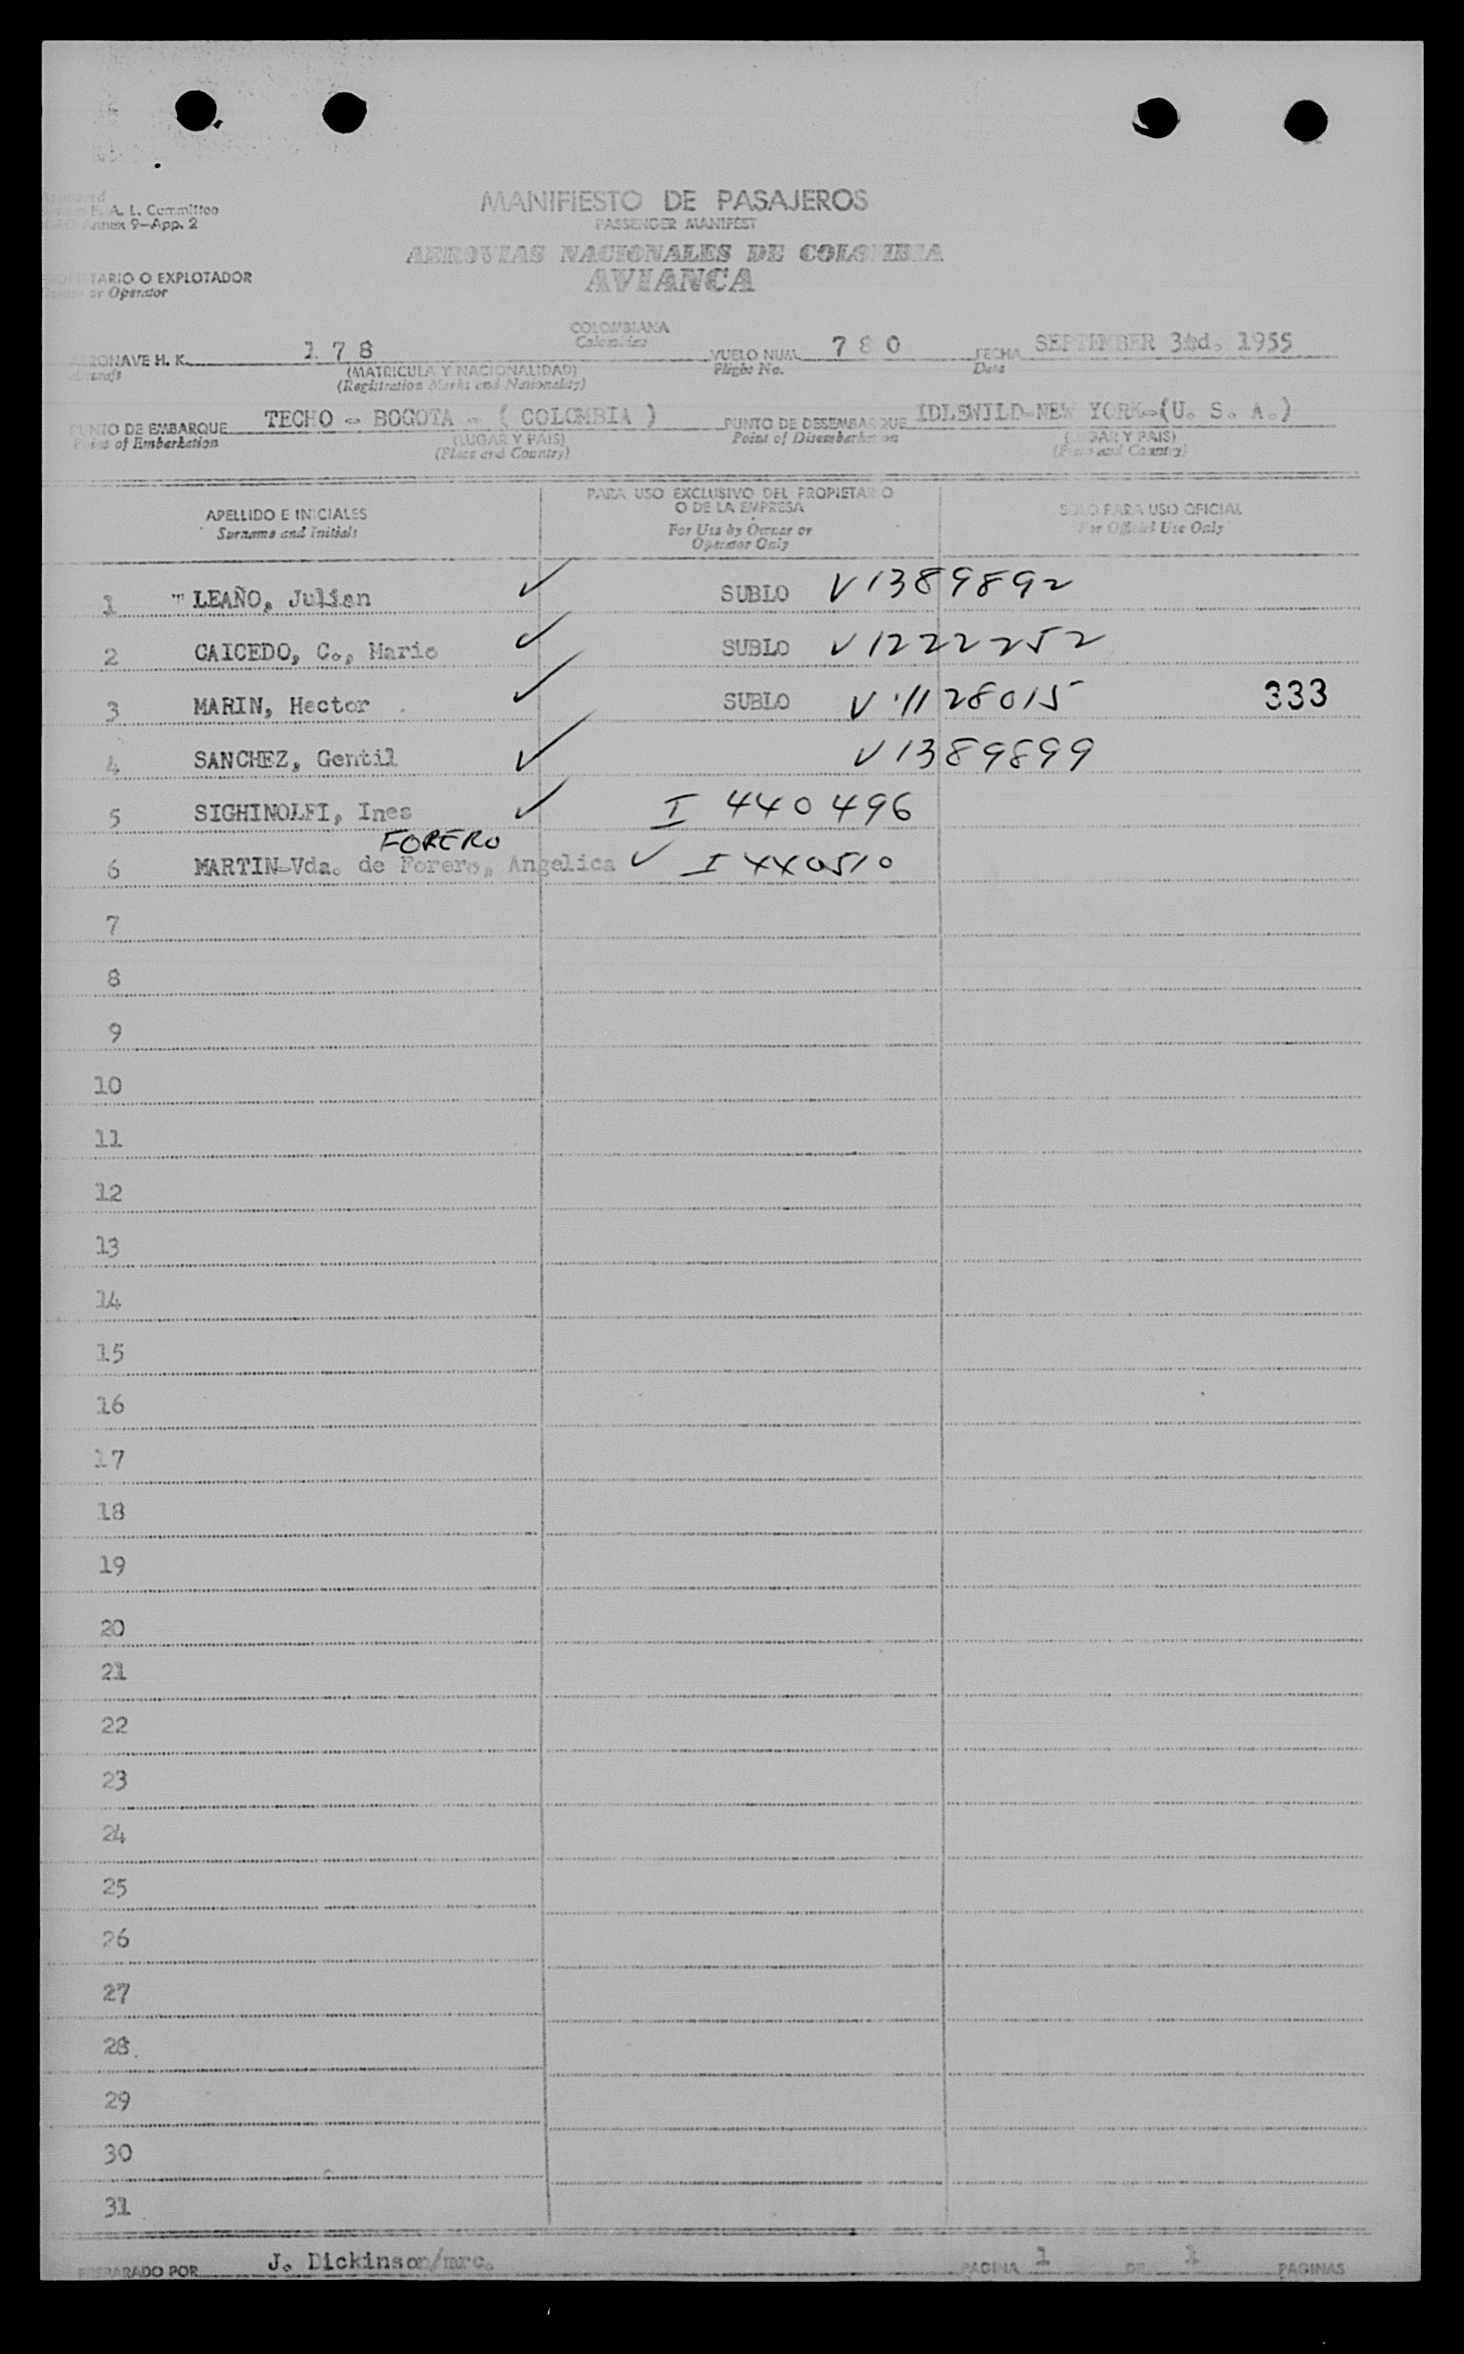 A. L. Committee
Annex 9—App. 2
MANIFIESTO DE PASAJEROS
PASSENGER MANIFEST
AEROVIAS NACIONALES DE COLOMBIA
AVIANCA
O EXPLOTADOR
or Operator
COLOMBIANA
Colombian
H. K. 1 7 8 VUELO NUM. 7 8 0 FECHA SEPTEMBER 3rd. 1955
(MATRICULA Y NACIONALIDAD) Flight No. Date
(Registration Marks and Nationality)
PUNTO DE EMBARQUE TECHO - BOGOTA - ( COLOMBIA ) PUNTO DE DESEMBARQUE IDLEWILD-NEW YORK-(U. S. A.)
Point of Embarkation (LUGAR Y PAIS) Point of Disembarkation (LUGAR Y PAIS)
(Place and Country) (Place and Country)
APELLIDO E INICIALES PARA USO EXCLUSIVO DEL PROPIETARIO SOLO PARA USO OFICIAL
Surname and Initials O DE LA EMPRESA For Official Use Only
For Use by Owner or
Operator Only
1 LEAÑO, Julian ✓ SUBLO V1389892
2 CAICEDO, C., Mario ✓ SUBLO V1222252
3 MARIN, Hector ✓ SUBLO V1128015 333
4 SANCHEZ, Gentil ✓ V1389899
5 SIGHINOLFI, Ines ✓ I 440496
FORERO
6 MARTIN-Vda. de Forero, Angelica ✓ I 440510
7
8
9
10
11
12
13
14
15
16
17
18
19
20
21
22
23
24
25
26
27
28
29
30
31
PREPARADO POR J. Dickinson/mrc. PAGINA 1 DE 1 PAGINAS